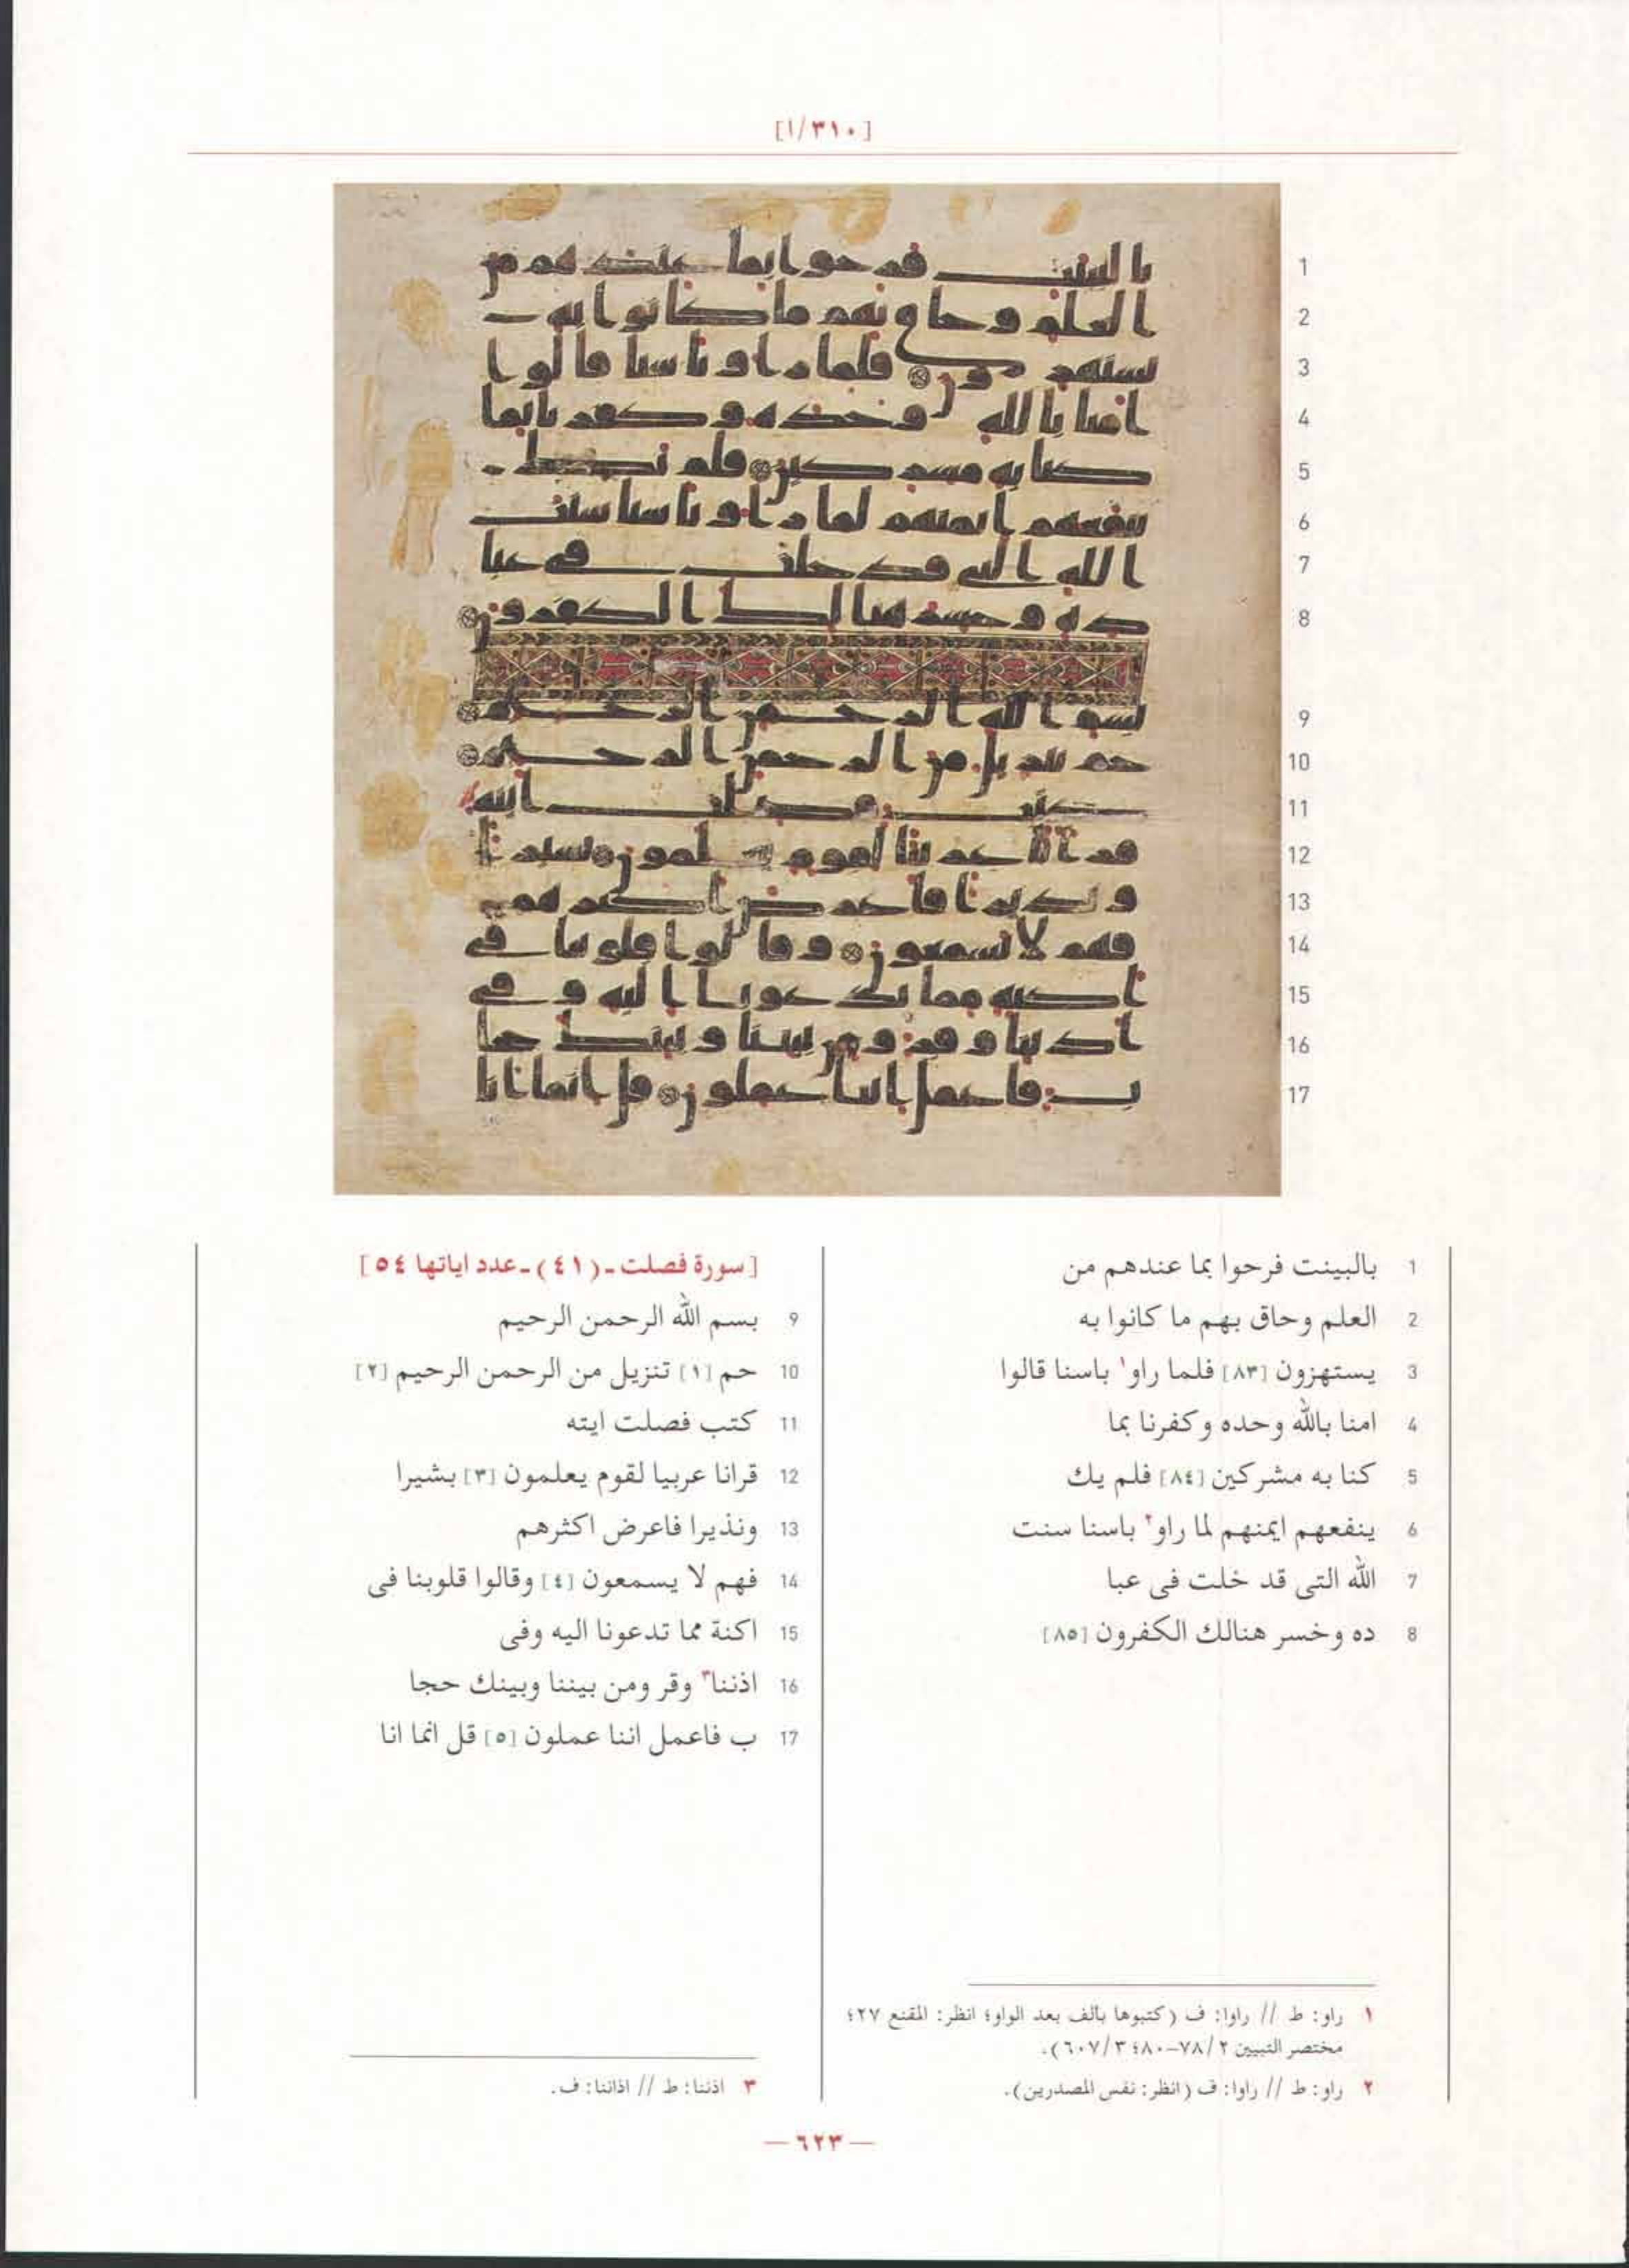 [٣١٠/ا]
1 بالبينت فرحوا بما عندهم من
2 العلم وحاق بهم ما كانوا به
3 يستهزون [٨٣] فلما راو١ باسنا قالوا
4 امنا بالله وحده وكفرنا بما
5 كنا به مشركين [٨٤] فلم يك
6 ينفعهم ايمنهم لما راو٢ باسنا سنت
7 الله التى قد خلت فى عبا
8 ده وخسر هنالك الكفرون [٨٥]
[سورة فصلت ـ (٤١) ـ عدد اياتها ٥٤]
9 بسم الله الرحمن الرحيم
10 حم [١] تنزيل من الرحمن الرحيم [٢]
11 كتب فصلت ايته
12 قرانا عربيا لقوم يعلمون [٣] بشيرا
13 ونذيرا فاعرض اكثرهم
14 فهم لا يسمعون [٤] وقالوا قلوبنا فى
15 اكنة مما تدعونا اليه وفى
16 اذننا٣ وقر ومن بيننا وبينك حجا
17 ب فاعمل اننا عملون [٥] قل انما انا
١ راو: ط // راوا: ف (كتبوها بالف بعد الواو؛ انظر: المقنع ٢٧؛
مختصر التبيين ٢/ ٧٨-٨٠؛ ٣/ ٦٠٧).
٢ راو: ط // راوا: ف (انظر: نفس المصدرين).
٣ اذننا: ط // اذاننا: ف.
— ٦٢٣ —